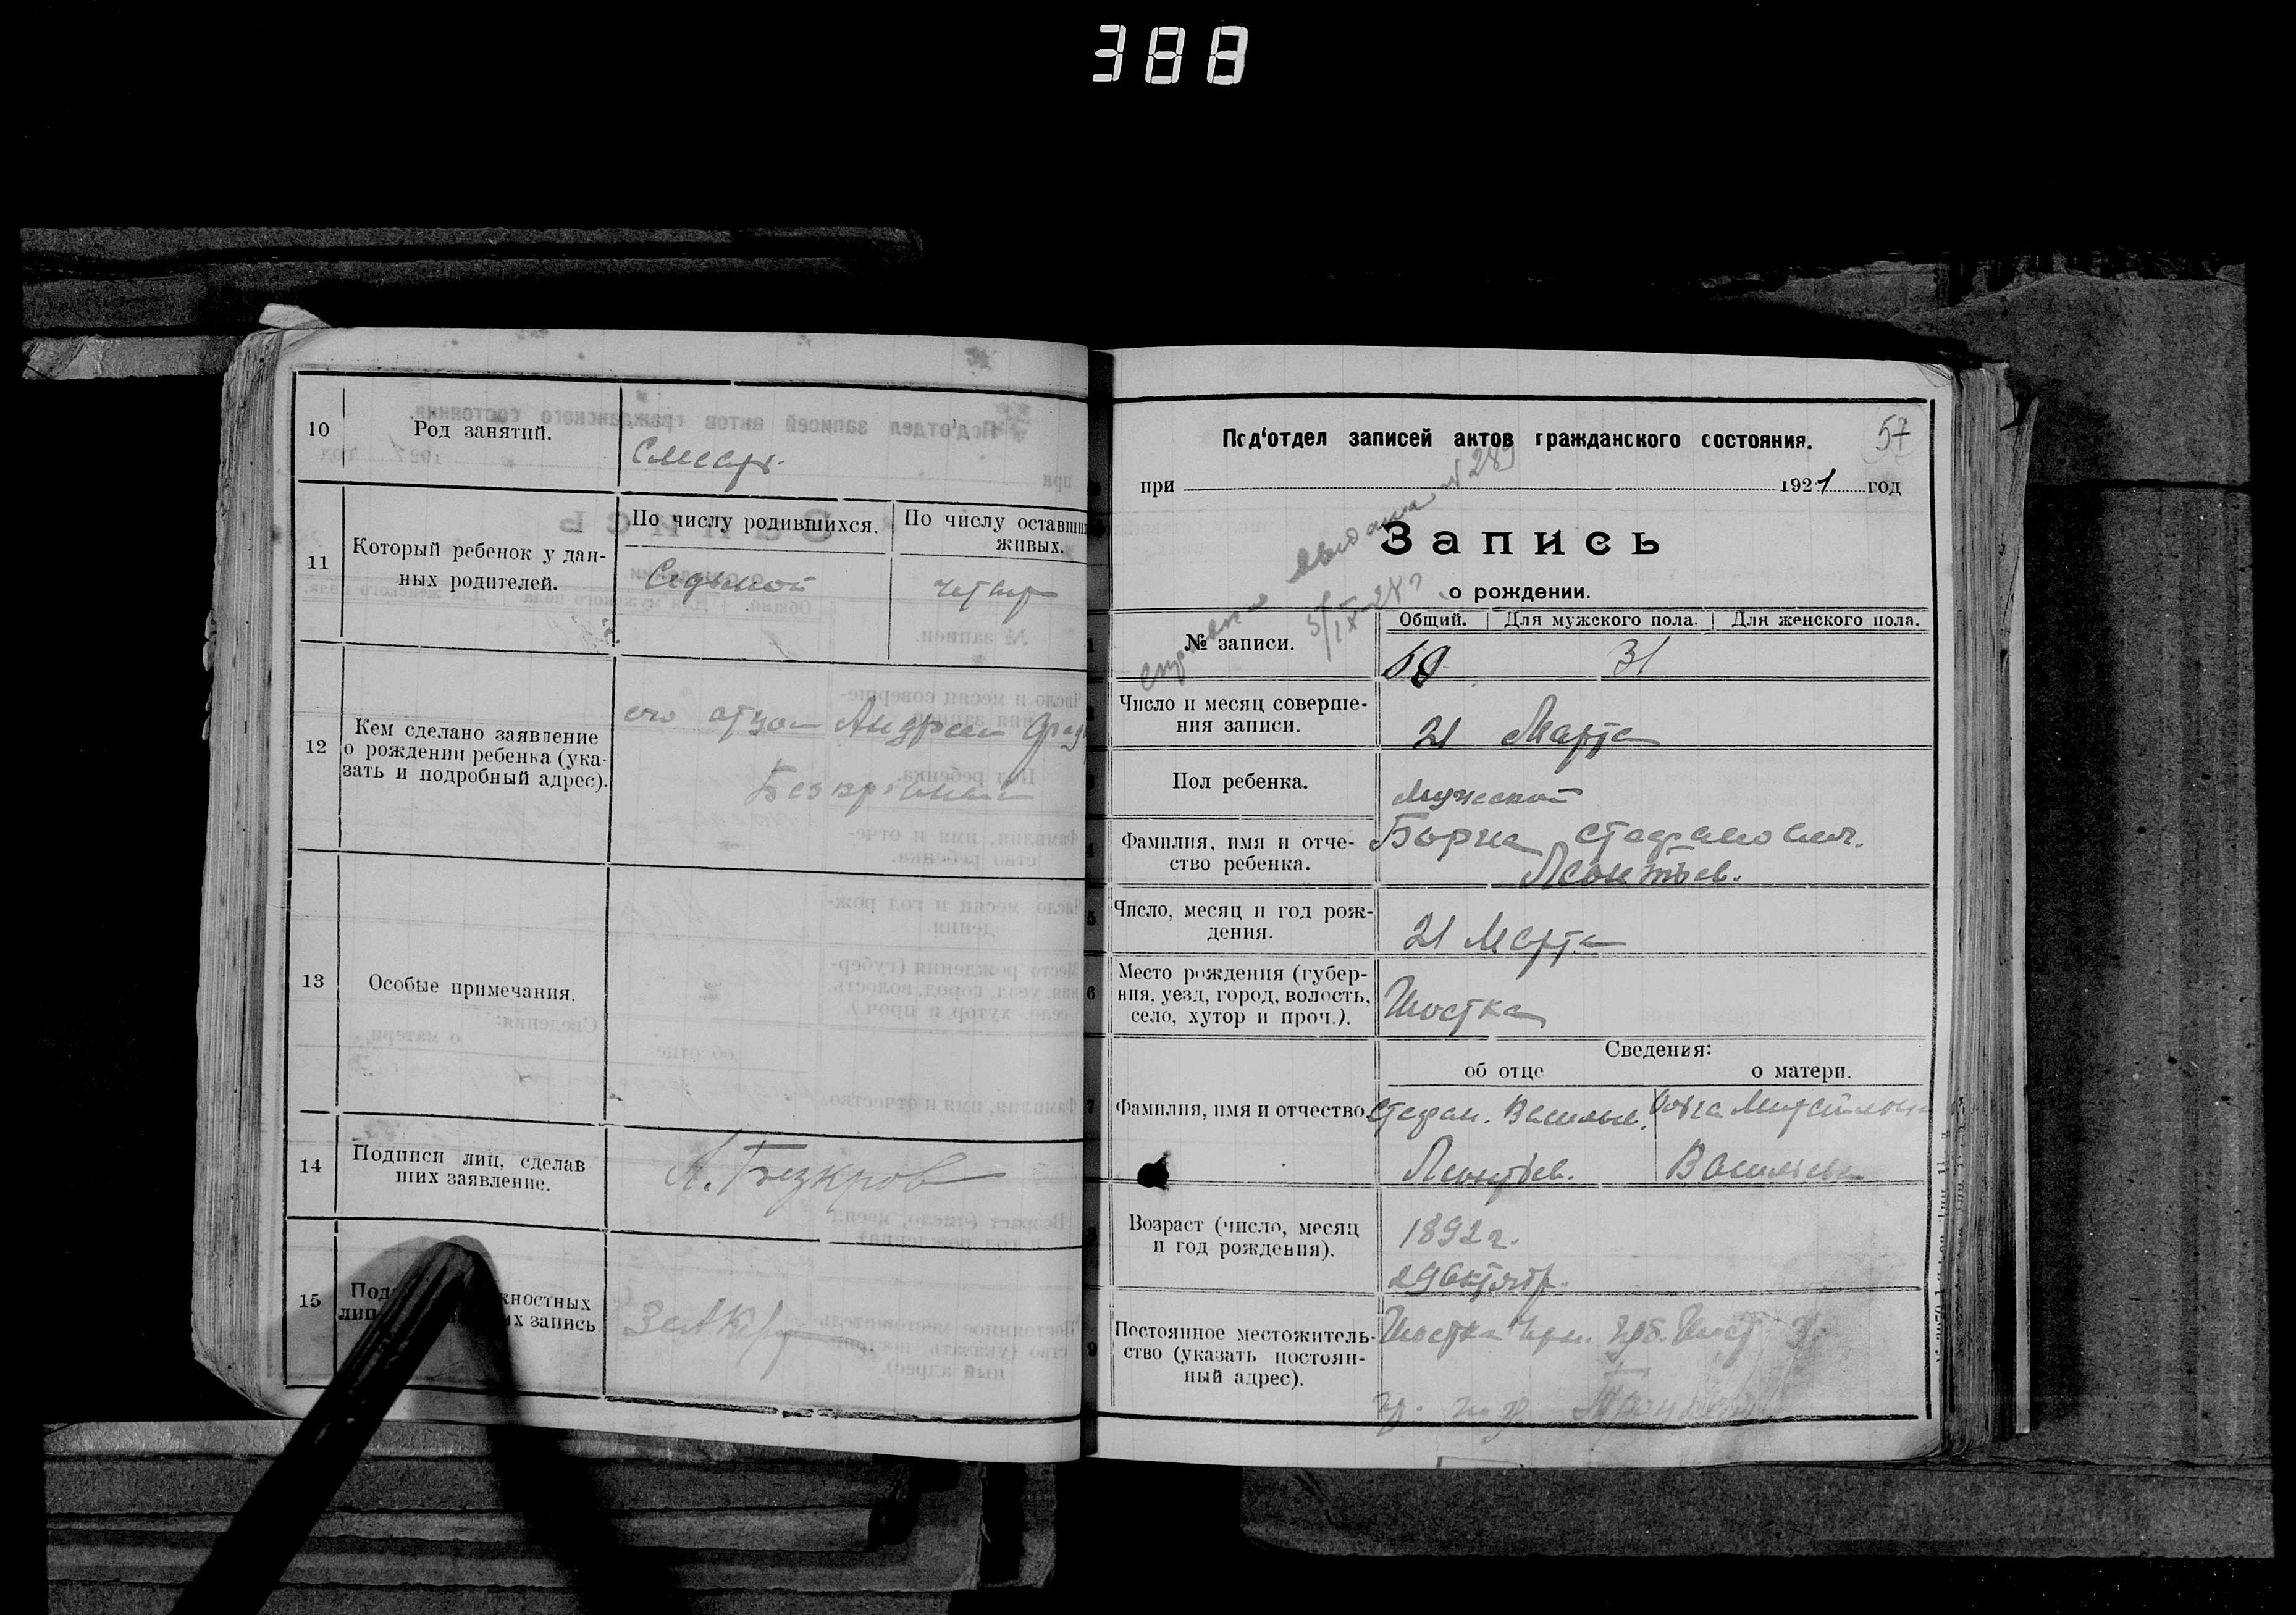 388
10
Род занятий.
Слесарь.
11
Который ребенок у дан-
ных родителей.
По числу родившихся.
По числу оставши
живых.
Седьмой
четвер
12
Кем сделано заявление
о рождении ребенка (ука-
зать и подробный адрес).
его отцом Андреем
13
Особые примечания.
14
Подписи лиц, сделав
ших заявление.
15
Под ностных
лиц их запись
57
Под‘отдел записей актов гражданского состояния.
при 1921 год
Запись
о рождении.
выдана № 289
5/IX-28
1
№ записи.
Общий. Для мужского пола. Для женского пола.
31
Число и месяц соверше-
ния записи.
21 Марта
Пол ребенка.
Мужеской
4
Фамилия, имя и отче-
ство ребенка.
Стефанович.
Леонтьев.
5
Число, месяц и год рож-
дения.
21 Марта
6
Место рождения (губер-
ния, уезд, город, волость,
село, хутор и проч.).
Шостка
Сведения:
об отце
о матери.
7
Фамилия, имя и отчество.
Стефан. Васильев.
Леонтьев.
Васильевна
Возраст (число, месяц
и год рождения).
1892 г.
29 Октябр.
9
Постоянное местожитель-
ство (указать постоян-
ный адрес).
Шостка